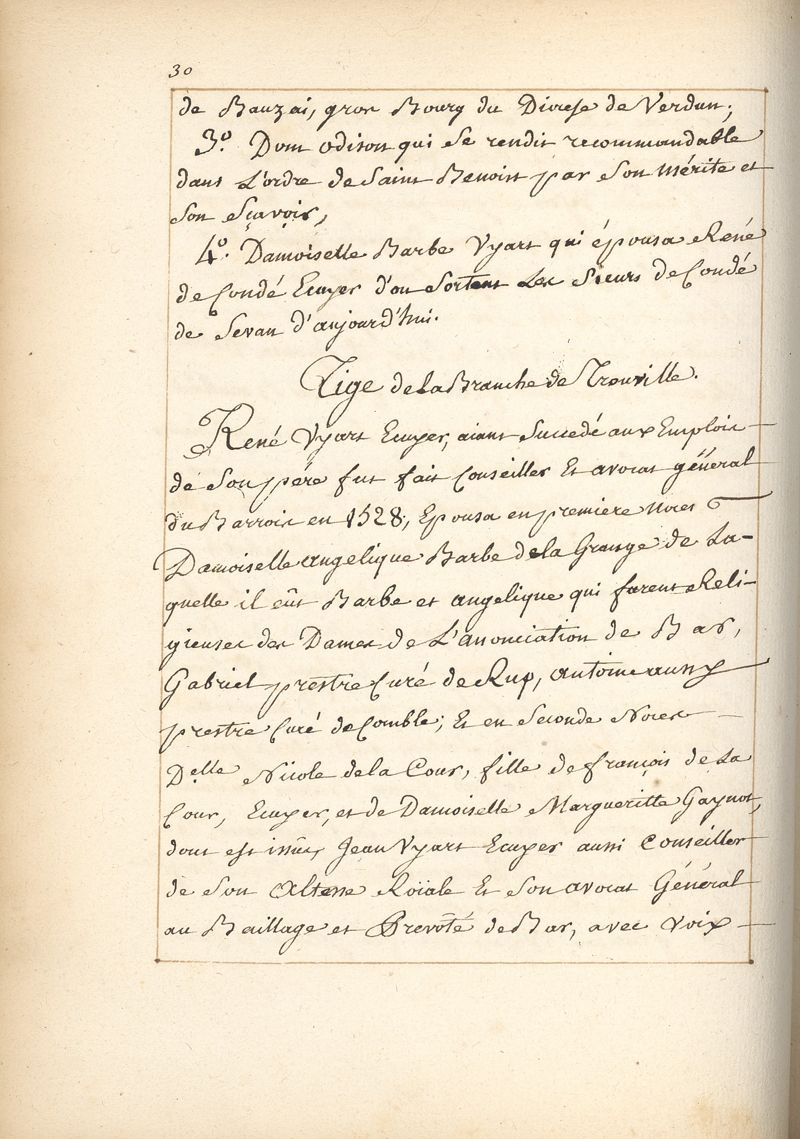 30
de Bauzai, gros Bourg du Diocese de Verdun;
3.º Dom odison qui se rendit recommandable
dans L'ordre de Saint Benoist par son mérite et
son sçavoir,
4.º Damoiselle Barbe Vyart qui épousa René
de Condé Ecuyer d'ou sortent Les Sieurs de Condé
de Sevan d'aujourd'hui.
Tige de la Branche de Trouville.
René Vyart Ecuyer, aiant succedé aux Emplois
de son père fut fait Conseiller Et avocat général
du Barrois en 1528, Epousa en premiere noces
Damoiselle angelique Barbe de la Grange de La-
quelle il eût Barbe et angelique qui furent Reli-
gieuses des Dames de L'anonciation de Bar,
Gabriel prestre Curé de Rup, antoine aussy
prestre Curé de Comble; Et en seconde Noces
D.elle Nicole de la Cour, fille de françois de La
Cour, Ecuyer, et de Damoiselle Margueritte Gaynot,
dont est issûe Jean Vyart Ecuyer aussi Conseiller
de son Altesse Roïale Et son avocat Général
au Baillage et Prevôté de Bar, avec voix